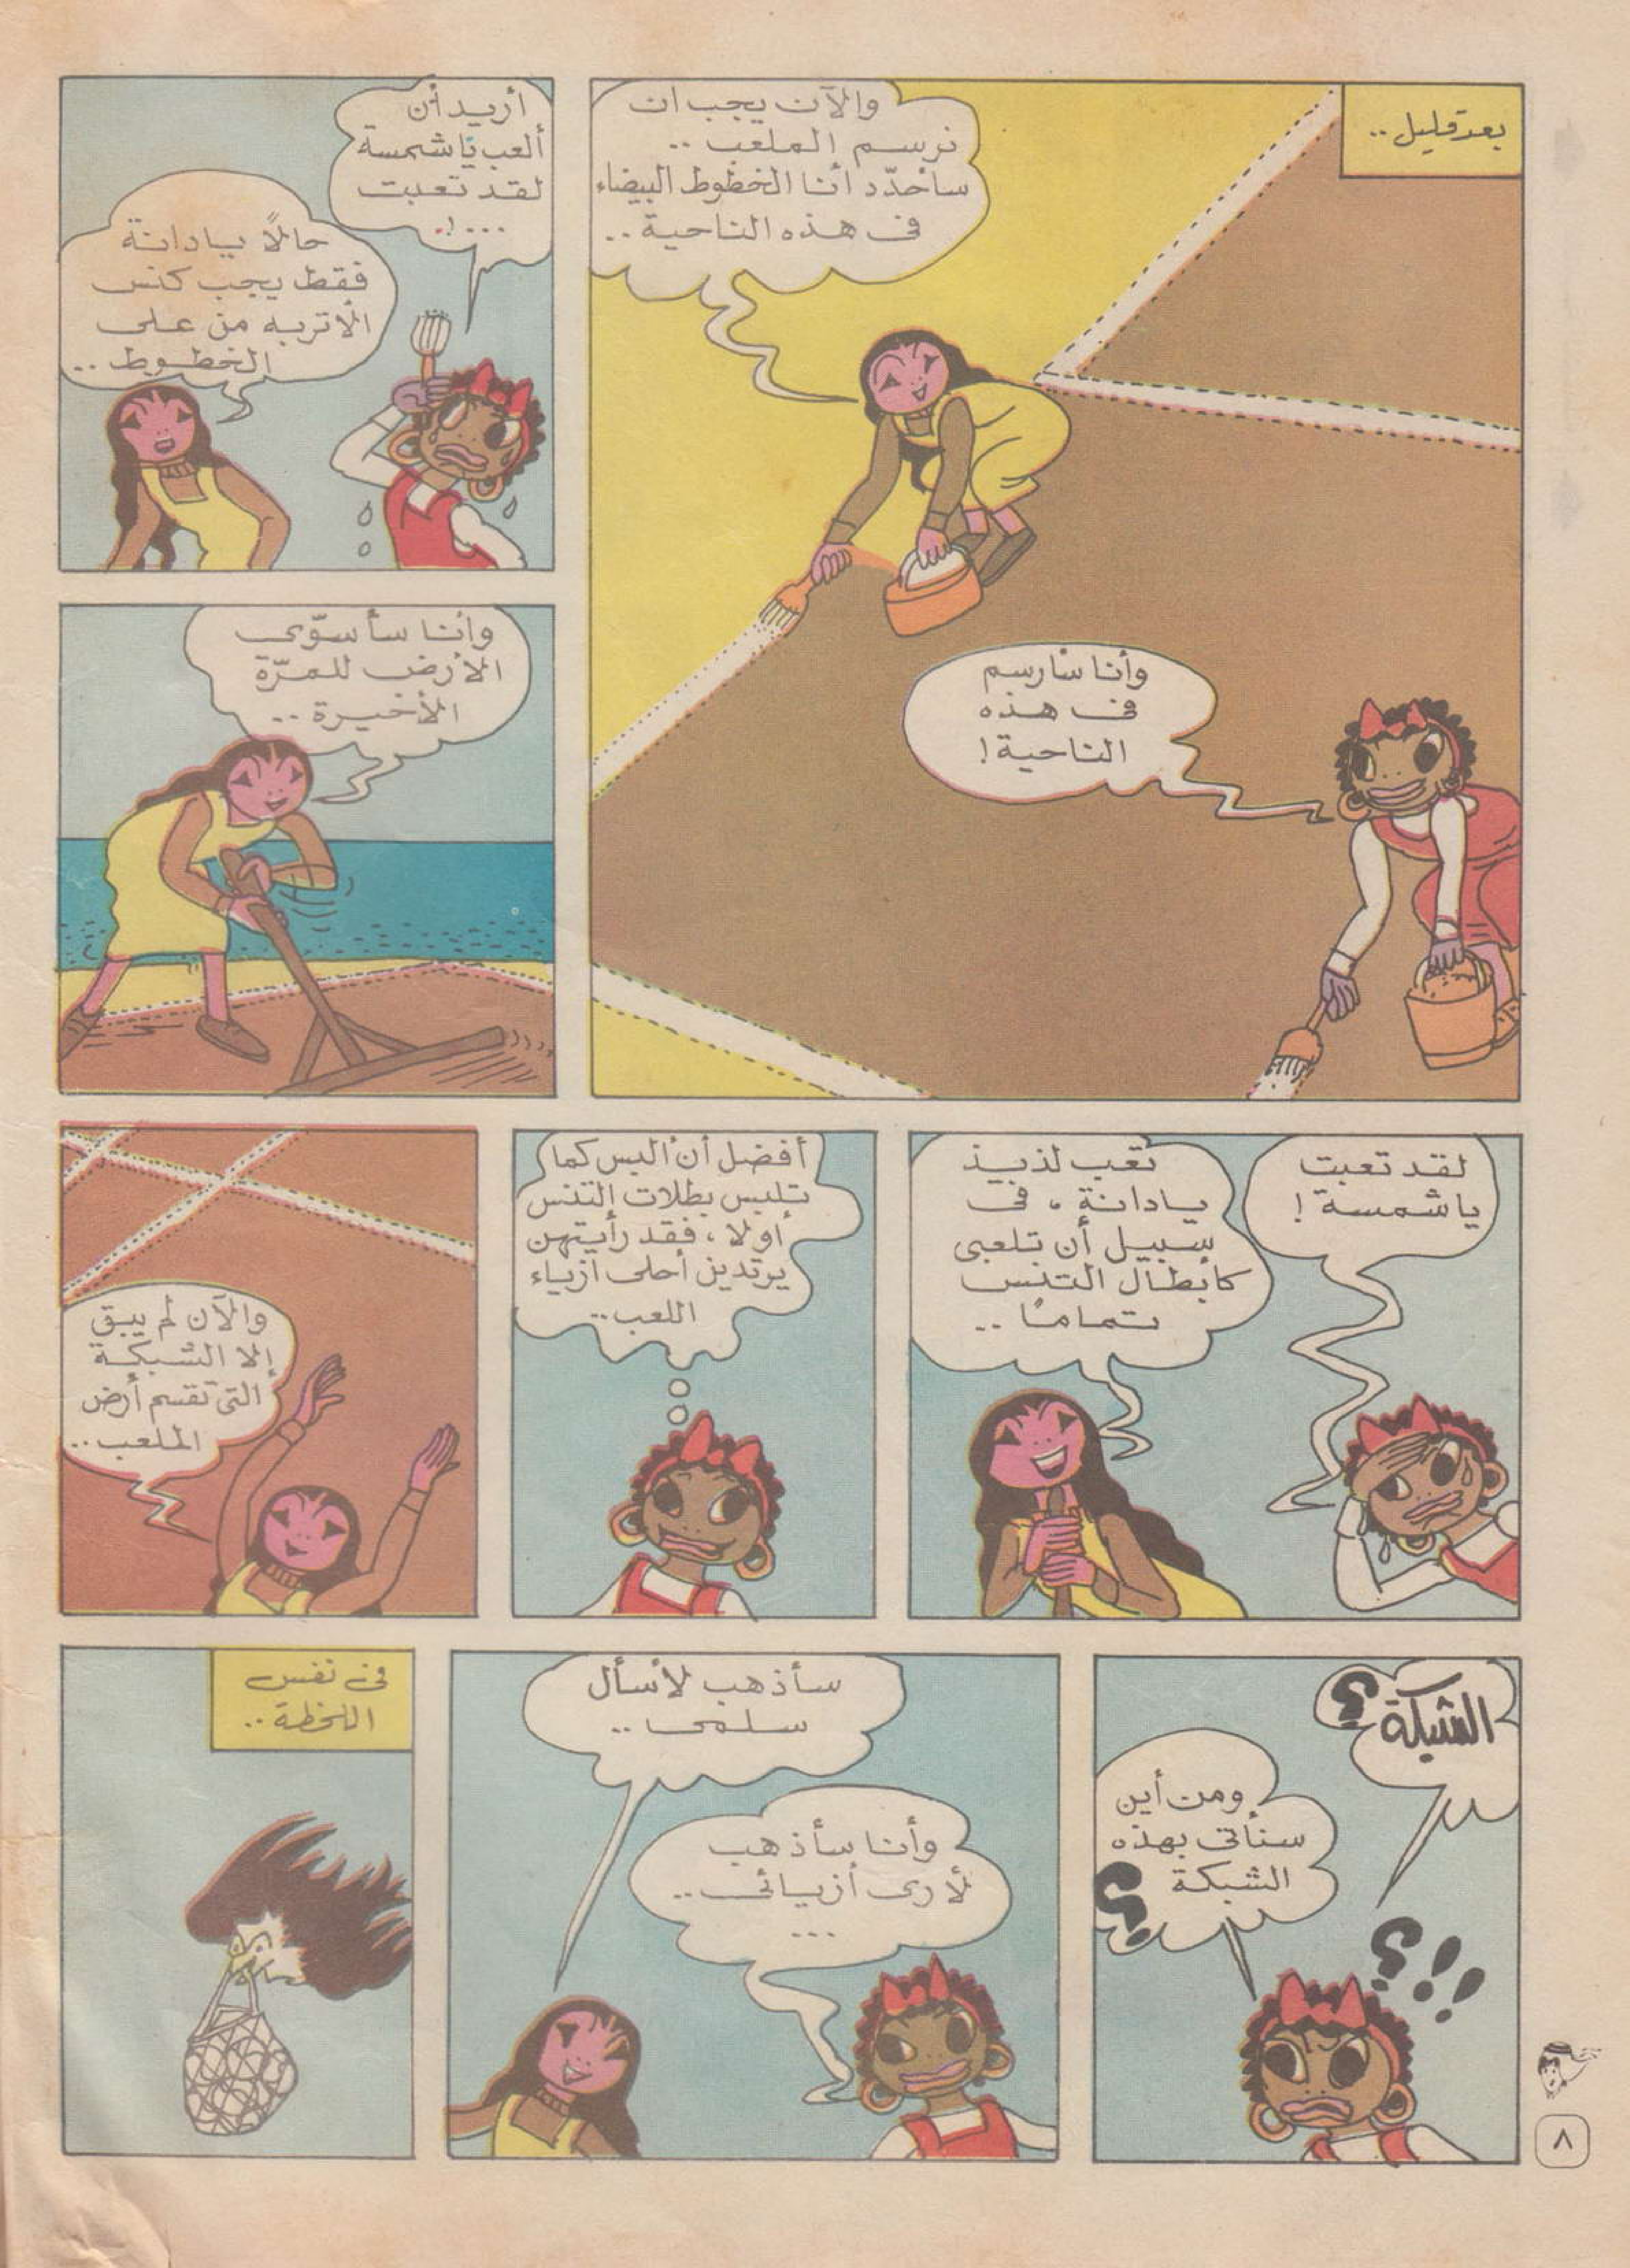 بعد قليل ..
والآن يجب ان
نرسم الملعب ..
سأحدّد أنا الخطوط البيضاء
فى هذه الناحية ..
وأنا سأرسم
فى هذه
الناحية !
أريد أن
ألعب يا شمسة
لقد تعبت
... !.
حالاً يا دانة
فقط يجب كنس
الأتربه من على
الخطوط ..
وأنا سأسوّى
الأرض للمرّة
الأخيرة ..
لقد تعبت
ياشمسة !
تعب لذيذ
يادانة ، فى
سبيل أن تلعبى
كأبطال التنس
تمامًا ..
أفضل أن ألبس كما
تلبس بطلات التنس
أولا ، فقد رأيتهن
يرتدين أحلى ازياء
اللعب ..
والآن لم يبق
إلا الشبكة
التى تقسم أرض
الملعب ..
الشبكة ؟
ومن أين
سنأتى بهذه
الشبكة ؟
؟!!
سأذهب لأسأل
سلمى ..
وأنا سأذهب
لأرى أزيائى ..
...
فى نفس
اللحظة ..
٨